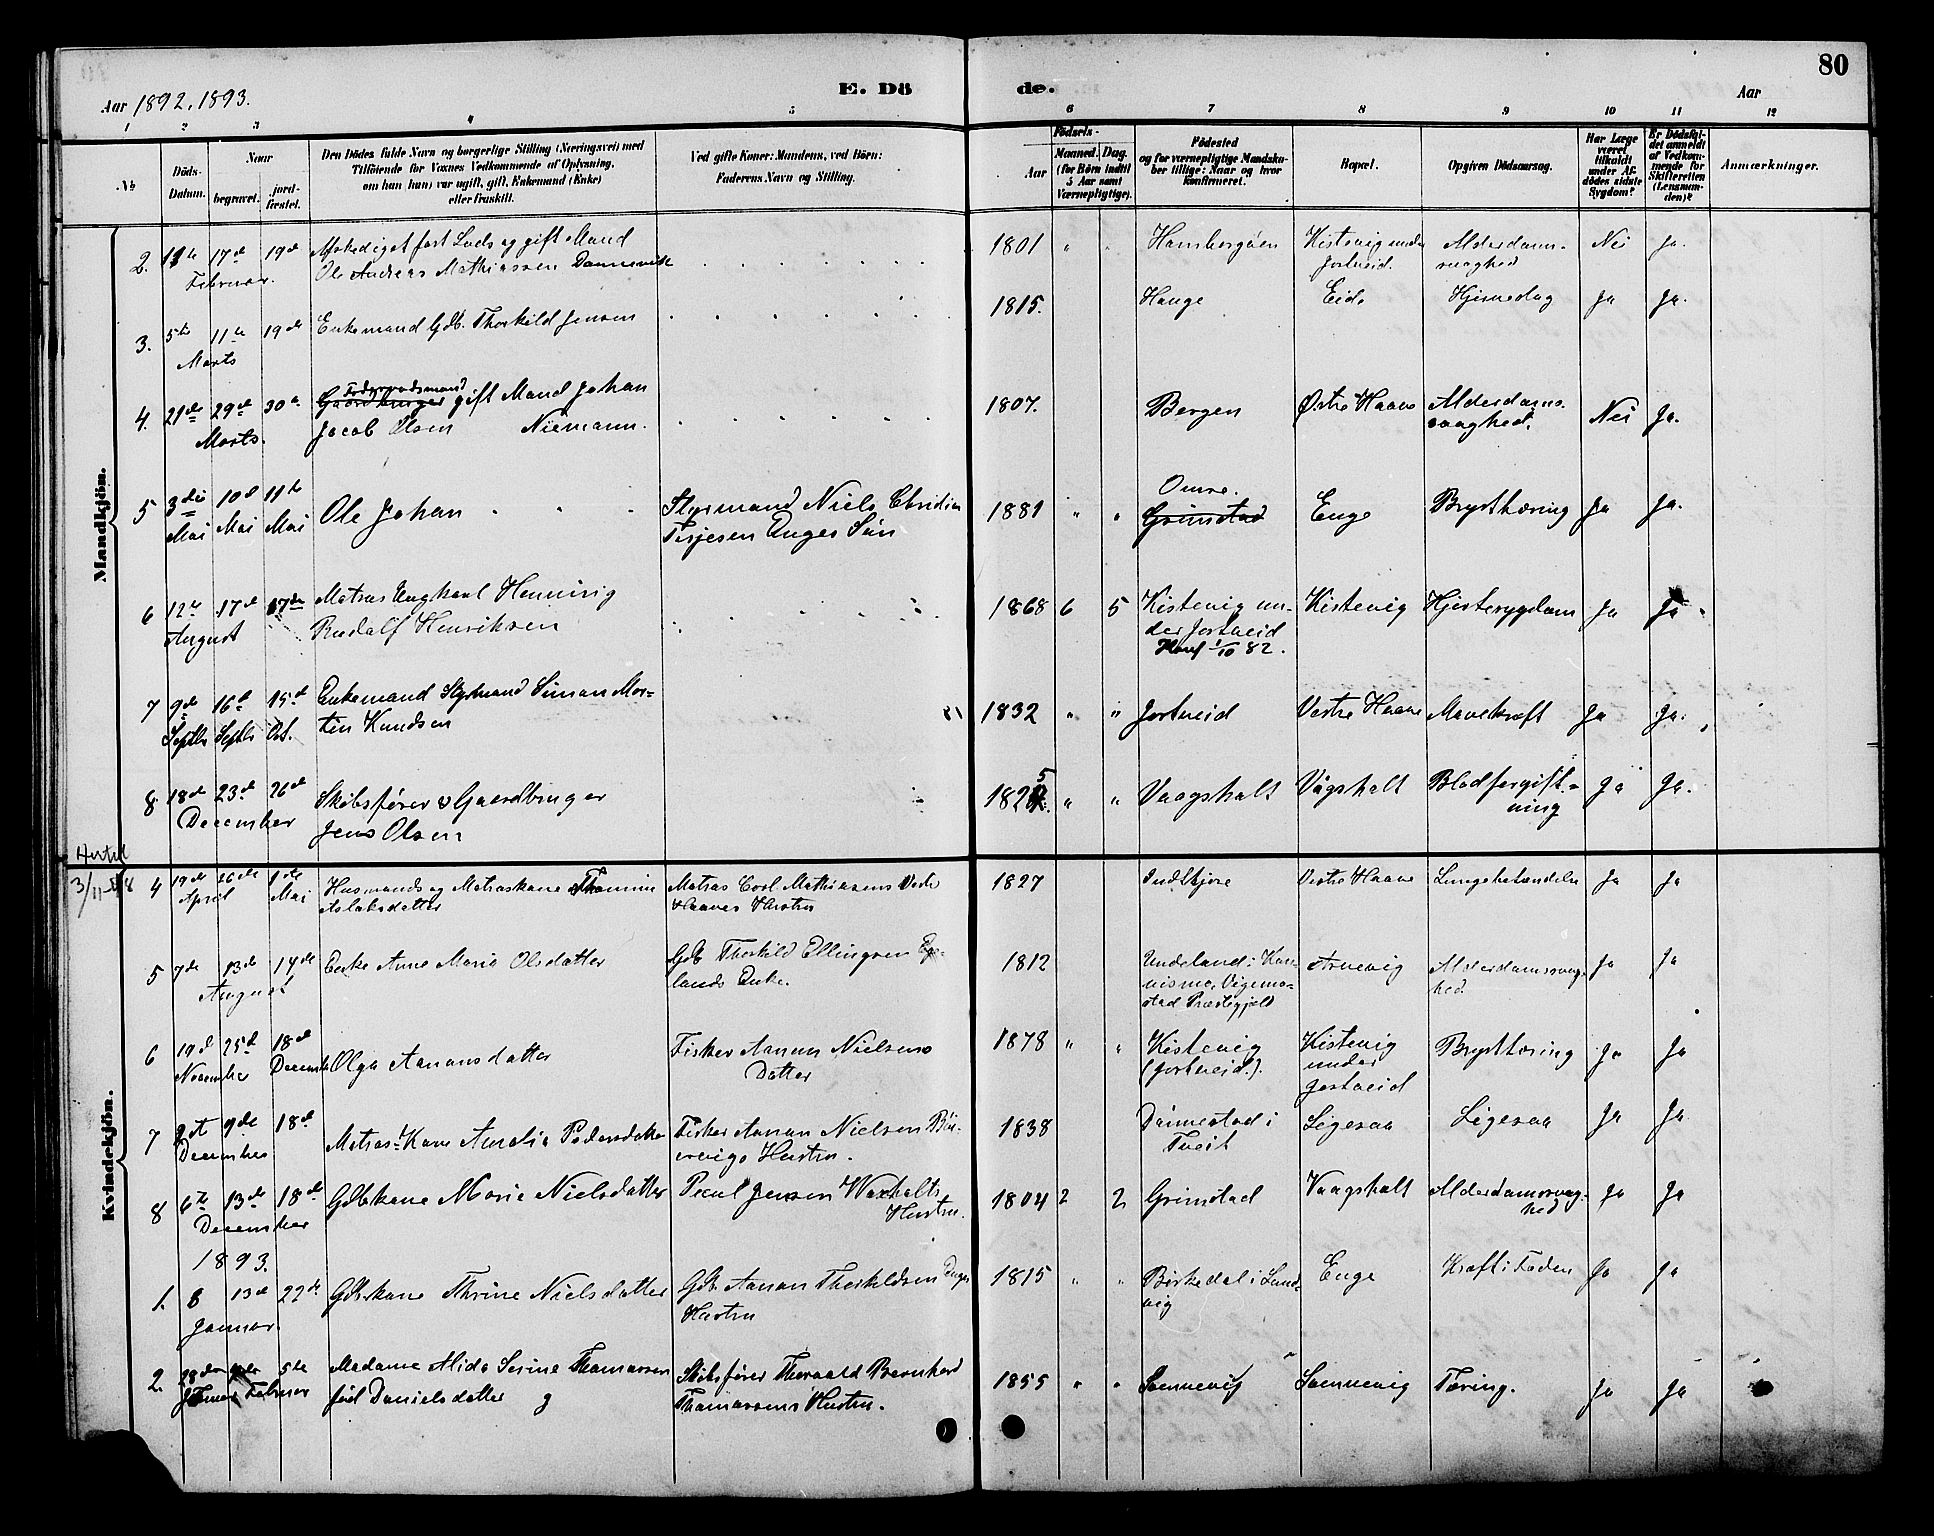 80
Aar 1892, 1893.
E. Dö
de.
Aar
1 2 3 4 5 6 7 8 9 10 11 12
No
Döds-
Datum.
Naar
begravet.
jord-
fæstet.
Den Dödes fulde Navn og borgerlige Stilling (Næringsvei) med
Tilföiende for Voxnes Vedkommende af Oplysning,
om han (hun) var ugift, gift, Enkemand (Enke)
eller fraskilt.
Ved gifte Koner: Mandens, ved Börn:
Faderens Navn og Stilling.
Födsels-
Aar
Maaned.
Dag.
(for Börn indtil
5 Aar samt
Værnepligtige).
Födested
og for værnepligtige Mandska-
ber tillige: Naar og hvor
konfirmeret.
Bopæl.
Opgiven Dödsaarsag.
Har Læge
været
tilkaldt
under Af-
dödes sidste
Sygdom?
Er Dödsfal-
det anmeldt
af Vedkom-
mende for
Skifteretten
(Lensman-
den)?
Anmærkninger.
Mandkjön.
2. 11te 17de 19de
Februar.
fast Lods og gift Mand
Ole Andreas Mathiassen Dannevik
1801 Hambergöen Kistevig under Jortveid. Alderdoms-
svaghed Nei Ja.
3. 5te 11te 19de
Marts
Enkemand Gdb. Thorkild Jensen
1815. Hauge Eide Ja Ja.
4. 21de 29de 30te
Marts.
Föderaadsmand
Gaardbruger gift Mand Johan
Jacob Olsen Niemann.
1807. Bergen Østre Haave Alderdoms-
svaghed. Nei Ja.
5 3die 10de 11te
Mai Mai Mai
Ole Johan
Styrmand Niels Christian
Terjesen Enges Sön
1881 " " Omre.
Grimstad Enge Brysttæring Ja Ja.
6 12te 17de 17de
August
Matros Ungkarl Henning
Rudolf Henriksen
1868 6 5 Kistevig un-
der Jortveid
Konf 1/10 82.
Kistevig Hjertesygdom Ja Ja
7 9de 16de 15de
Septbr Septbr Oct.
Enkemand Styrmand Simon Mor-
ten Knudsen
1832 " " Jortveid Vestre Haave Mavekræft Ja Ja.
8 18de 23de 26de
December
Skibsfører & Gaardbruger
Jens Olsen
1825 " " Vaagsholt Vågsholt Blodforgift-
ning Ja Ja.
3/11
Kvindekjön.
4 19de 26de 1ste
April Mai
Husmands og Matroskone Thomine
Aslaksdatter
Matros Carl Mathiasens Vestre
Haaves Hustru
1827 Indskjore Vestre Haave Ja Ja
5 7de 13de 14de
August
Enke Anne Maria Olsdatter
Gdb Thorkild Ellingsen Eg-
lands Enke.
1812 Undeland i Kon-
nismo, Vigemo-
stad Præstegjeld
Arnevig Alderdomssvag-
hed. Ja Ja
6 19d 25de 18de
November December
Olga Aanonsdatter
Fisker Aanon Nielsens
Datter
1878 " " Kistevig
(Jortveid.).
Kistevig
under
Jortveid
Brysttæring Ja Ja
7 2det 9de 18de
December
Matros-Kone Amalia Pedersdatter
Fisker Aanon Nielsen Bör-
vigs Hustru.
1838 Dönnestad i
Tveit
Ligesaa Ligesaa Ja Ja
8 6te 13de 18de
December
Gdbkone Marie Nielsdatter
Poul Jensen Woxholts
Hustru.
1804 2 2 Grimstad Vaagsholt Alderdomssvag-
hed Ja Ja
1893.
1. 8 13de 22de
Januar.
Gdbkone Thrine Nielsdatter
Gdb. Aanon Thorkildsen Enges
Hustru
1815 " " Birkedal i Land-
vig
Enge Kræft i Foden Ja Ja
2. 28de 5te
Januar Februar
Madame Alida Serine Thomassen
föd Danielsdatter
Skibsfører Thorvald Bernhard
Thomassens Hustru.
1855 " " Somnevig Somnevig Tæring. Ja Ja